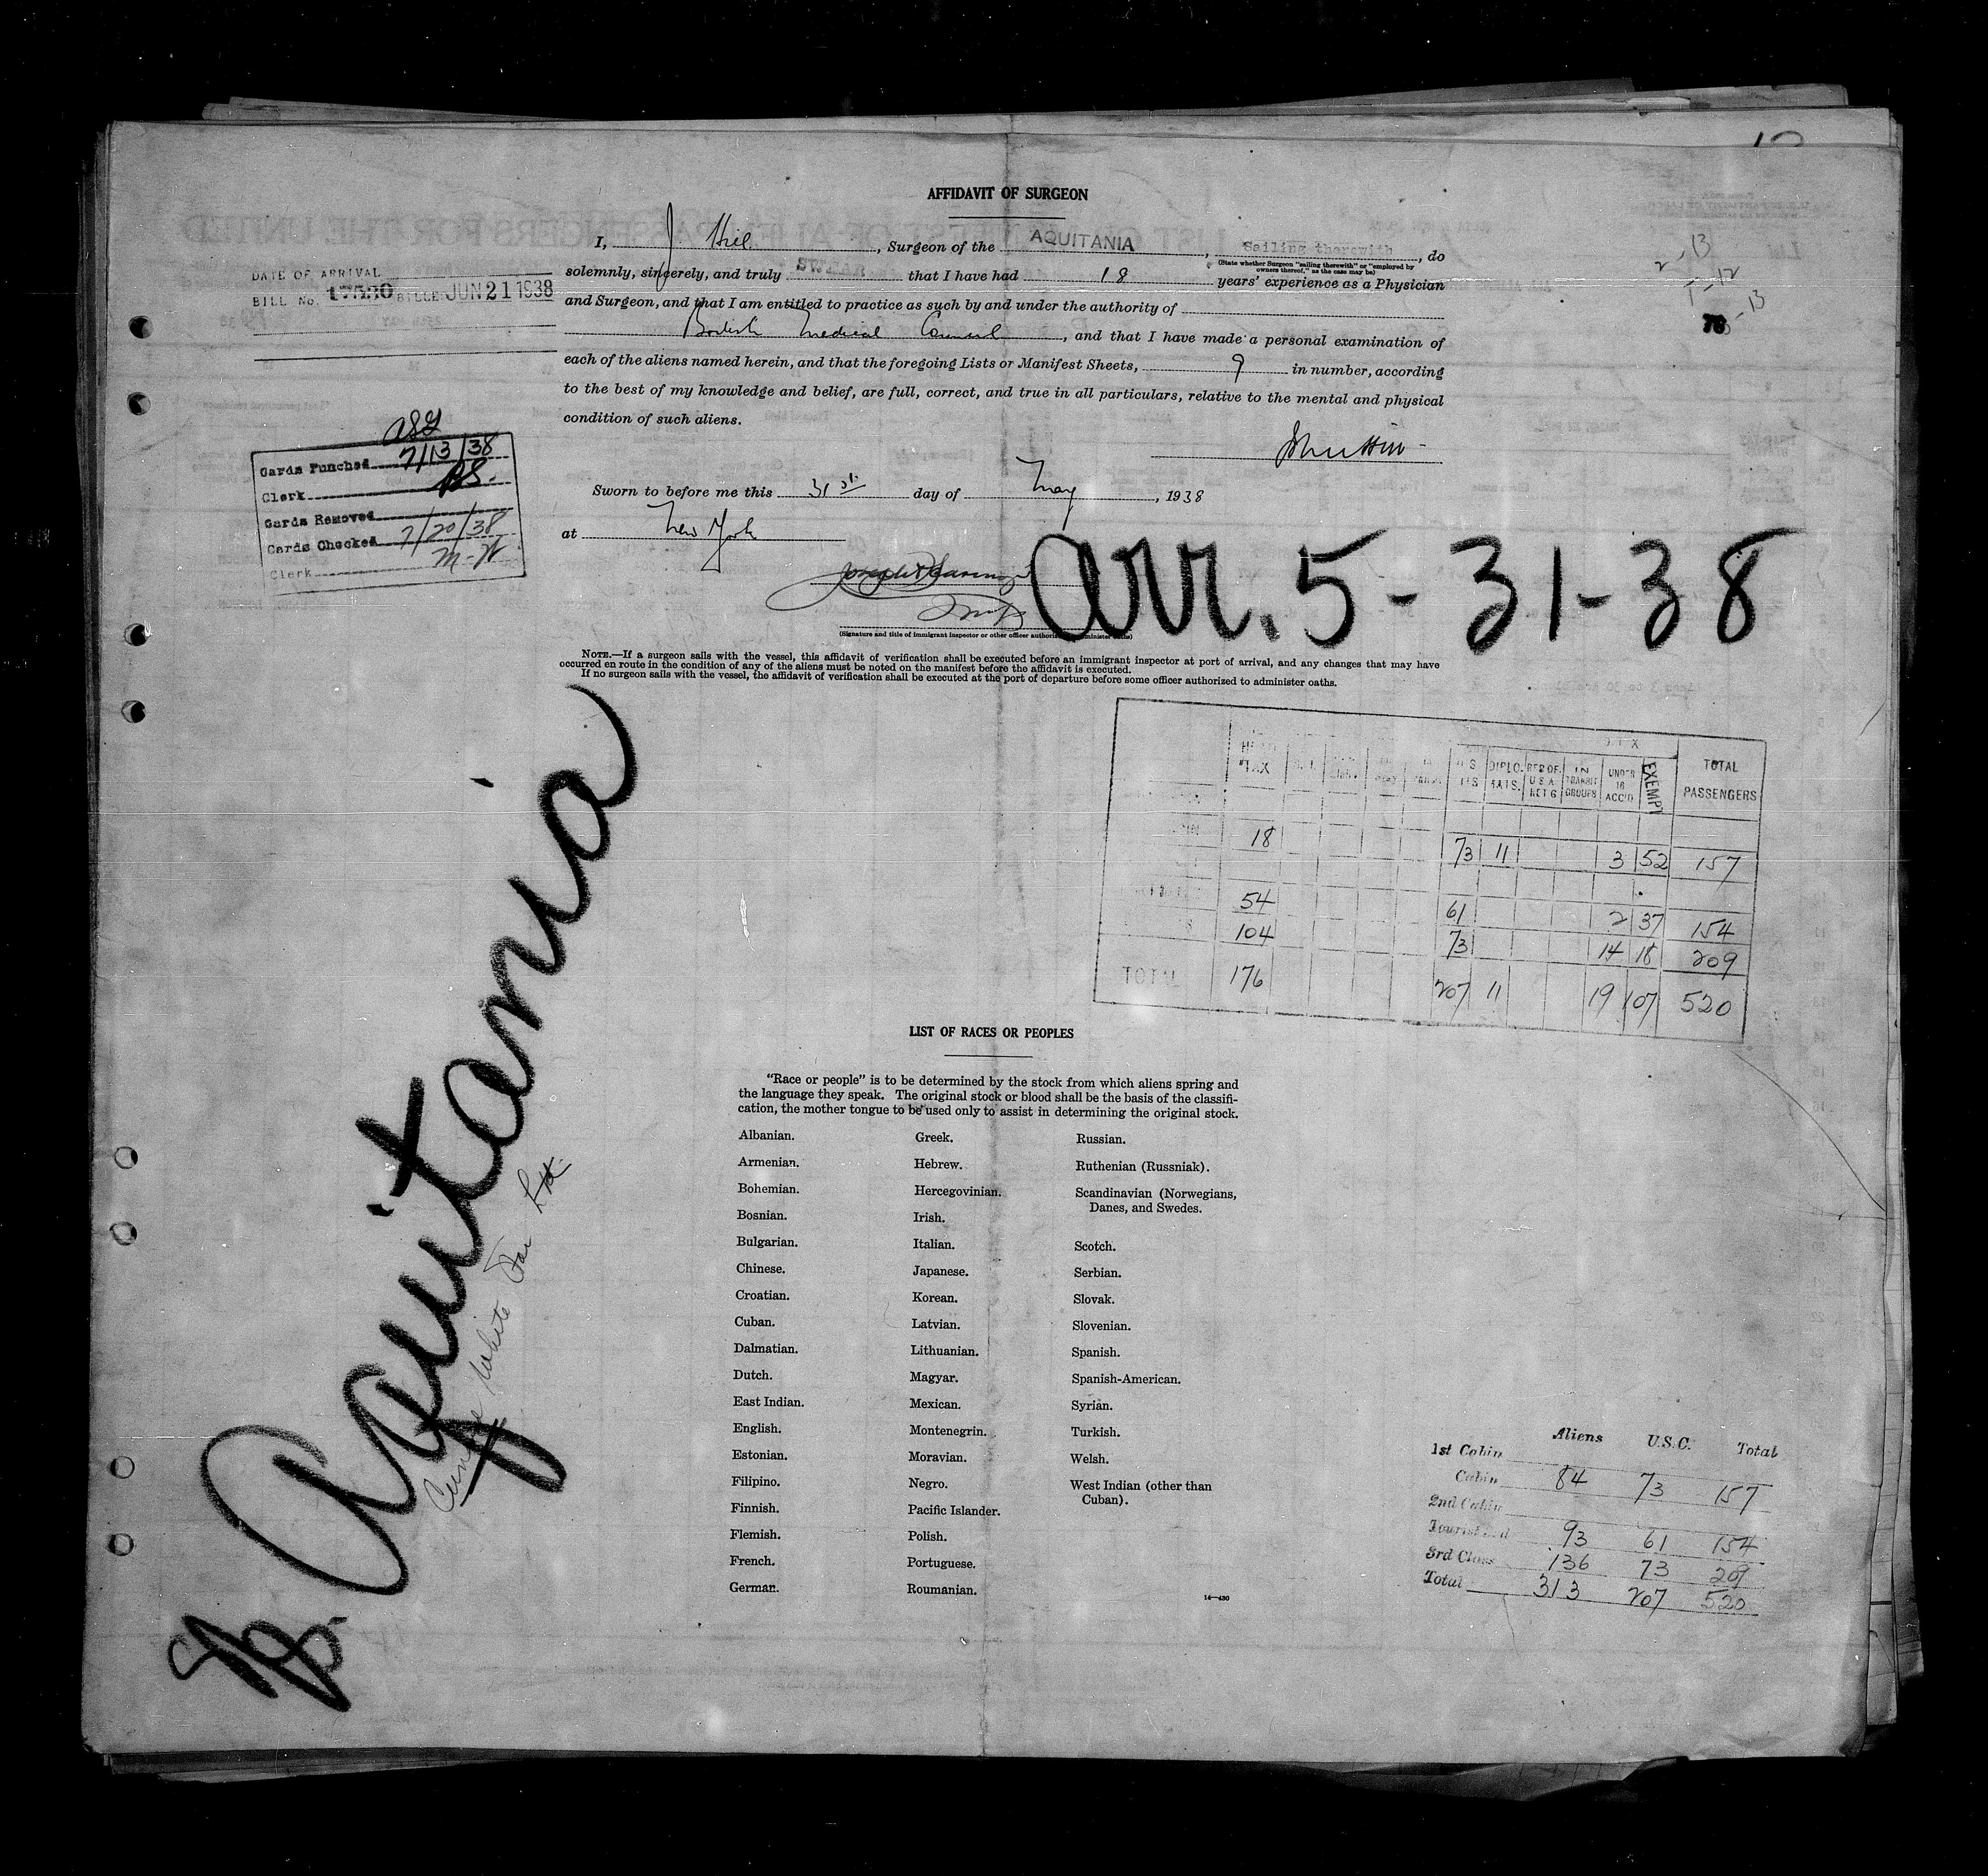 AFFIDAVIT OF SURGEON
I, J Hill, Surgeon of the AQUITANIA, Sailing therewith, do
(State whether Surgeon "sailing therewith" or "employed by
owners thereof," as the case may be)
solemnly, sincerely, and truly SWEAR that I have had 18 years' experience as a Physician
and Surgeon, and that I am entitled to practice as such by and under the authority of
British Medical Council, and that I have made a personal examination of
each of the aliens named herein, and that the foregoing Lists or Manifest Sheets, 9 in number, according
to the best of my knowledge and belief, are full, correct, and true in all particulars, relative to the mental and physical
condition of such aliens.
Sworn to before me this 31st day of May, 1938
at New York
(Signature and title of immigrant inspector or other officer authorized to administer oaths)
DATE OF ARRIVAL
BILL No. 17530 BILLED JUN 21 1938
Cards Punched 7/13/38
Clerk
Cards Removed
Cards Checked 7/20/38
Clerk M-W
Arr. 5-31-38
NOTE.—If a surgeon sails with the vessel, this affidavit of verification shall be executed before an immigrant inspector at port of arrival, and any changes that may have
occurred en route in the condition of any of the aliens must be noted on the manifest before the affidavit is executed.
If no surgeon sails with the vessel, the affidavit of verification shall be executed at the port of departure before some officer authorized to administer oaths.
Aquitania
Cunard White Star Ltd
HEAD TAX U S CITS DIPLOMATS. REP OF U.S.A. RET'G IN TRANSIT GROUPS UNDER 16 ACC'D EXEMPT TOTAL PASSENGERS
18 73 11 3 52 157
54 61 2 37 154
104 73 14 18 209
TOTAL 176 207 11 19 107 520
LIST OF RACES OR PEOPLES
"Race or people" is to be determined by the stock from which aliens spring and
the language they speak. The original stock or blood shall be the basis of the classifi-
cation, the mother tongue to be used only to assist in determining the original stock.
Albanian.
Armenian.
Bohemian.
Bosnian.
Bulgarian.
Chinese.
Croatian.
Cuban.
Dalmatian.
Dutch.
East Indian.
English.
Estonian.
Filipino.
Finnish.
Flemish.
French.
German.
Greek.
Hebrew.
Hercegovinian.
Irish.
Italian.
Japanese.
Korean.
Latvian.
Lithuanian.
Magyar.
Mexican.
Montenegrin.
Moravian.
Negro.
Pacific Islander.
Polish.
Portuguese.
Roumanian.
Russian.
Ruthenian (Russniak).
Scandinavian (Norwegians,
Danes, and Swedes.
Scotch.
Serbian.
Slovak.
Slovenian.
Spanish.
Spanish-American.
Syrian.
Turkish.
Welsh.
West Indian (other than
Cuban).
14—430
Aliens U.S.C. Total
1st Cabin
Cabin 84 73 157
2nd Cabin
Tourist 93 61 154
3rd Class 136 73 209
Total 313 207 520